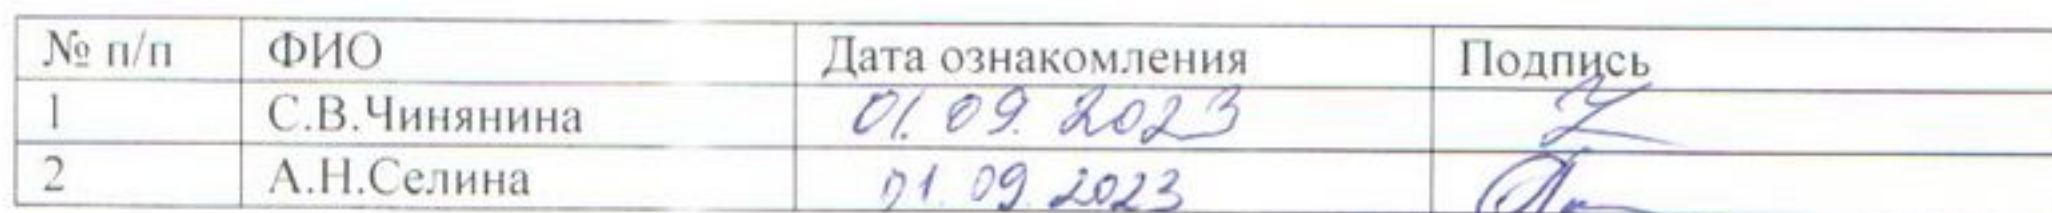 № п/п ФИО Дата ознакомления Подпись
1 С.В.Чинянина 01.09.2023
2 А.Н.Селина 01.09.2023